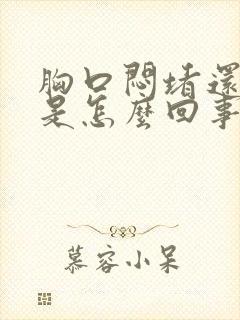 胸口悶堵還
是怎麼回事
慕容小呆